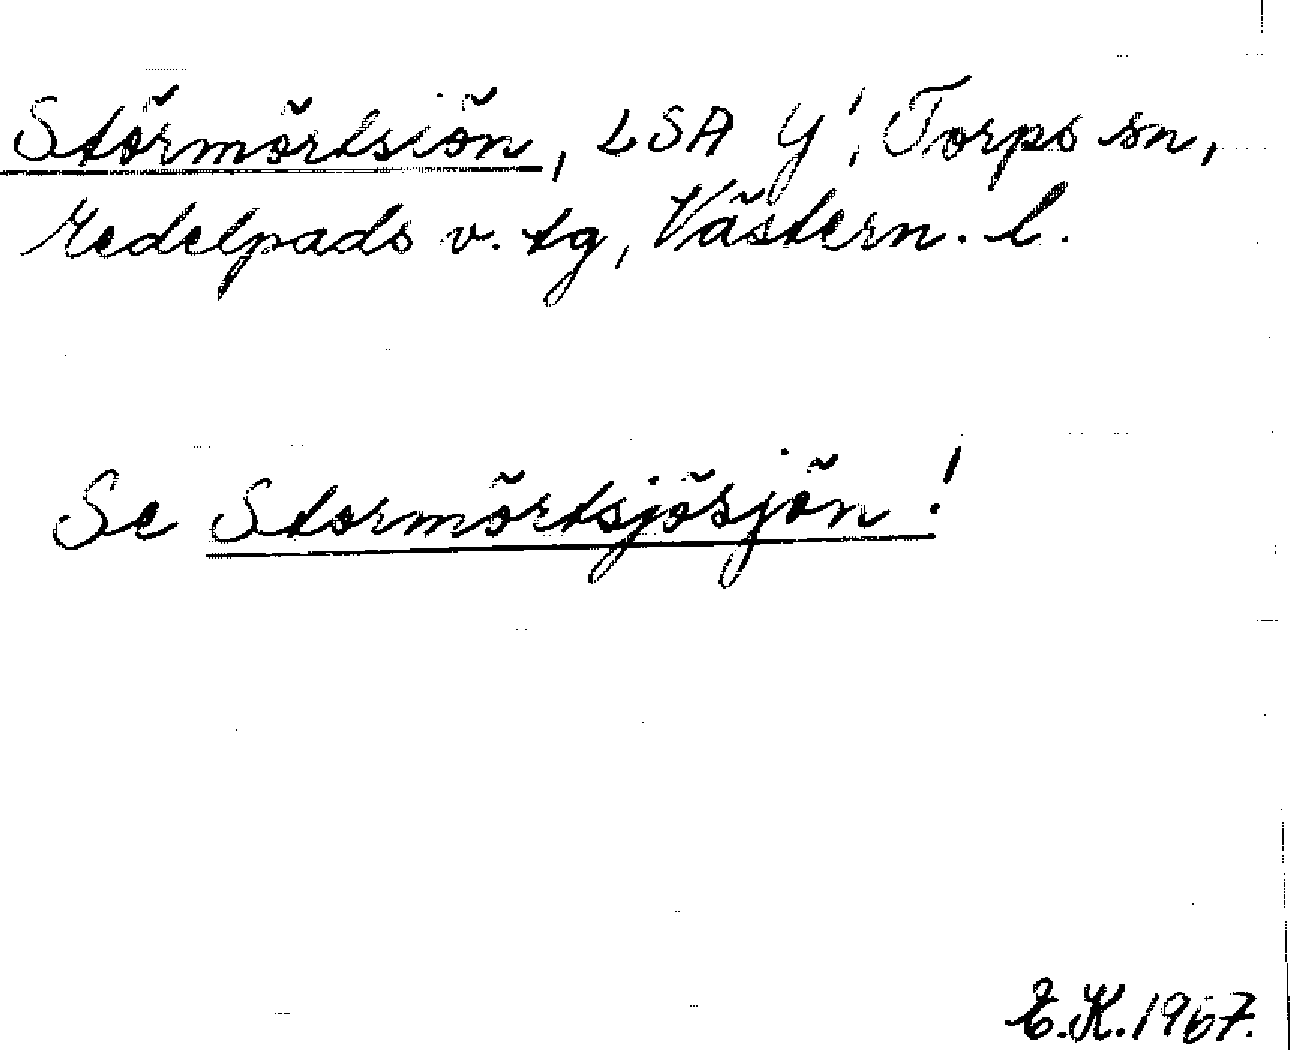 Störmörtsiön, LSA Y', Torps sn,
Medelpads v. tg, Västern. l.
Se Stormörtsjösjön!
E.K. 1967.